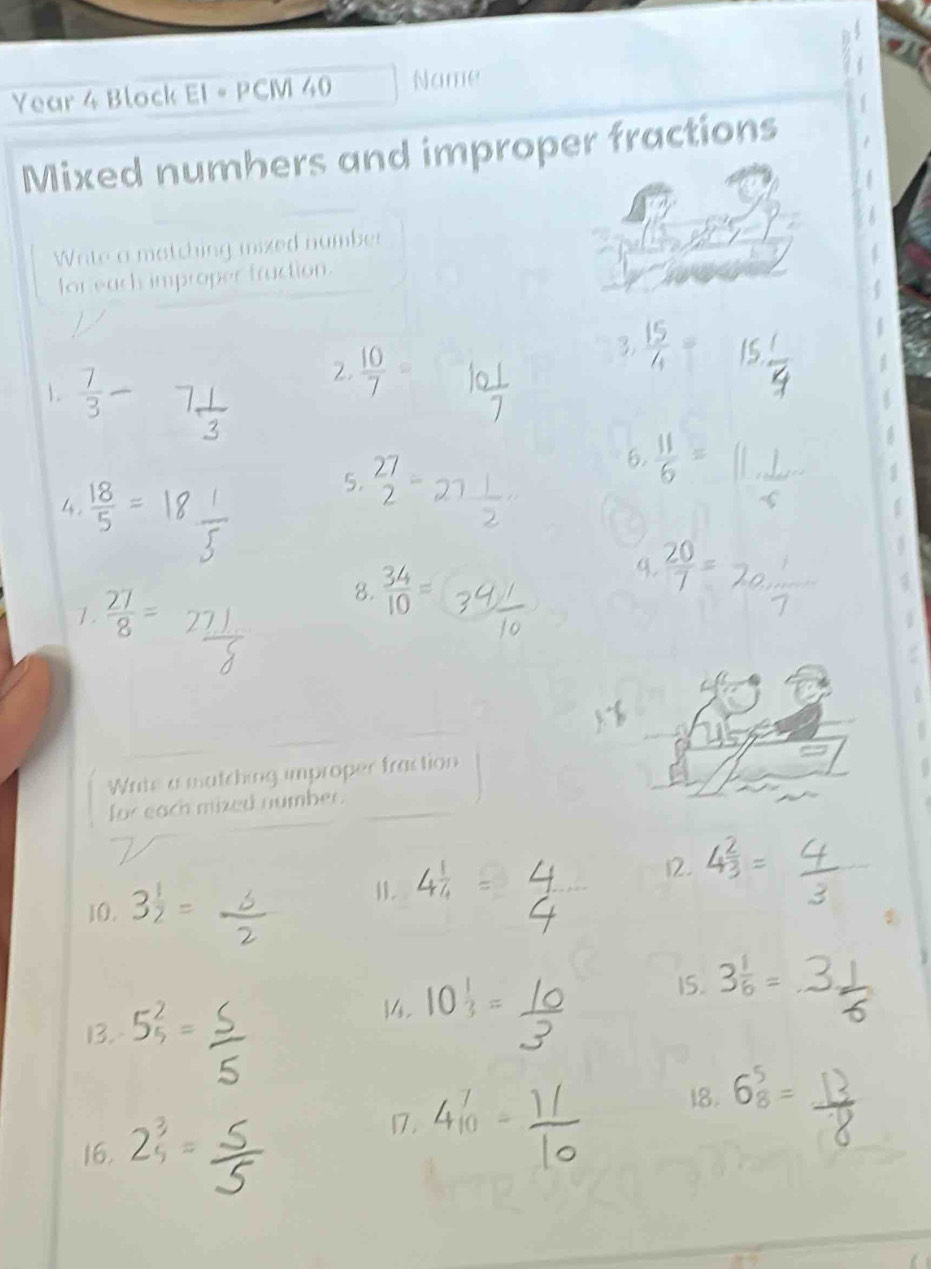 Year 4 Block E1 • PCM 40 Name
Mixed numbers and improper fractions
Write a matching mixed number
for each improper fraction.
1. 7/3 = 7 1/3
2. 10/7 = 10 1/7
3. 15/4 = 15 1/4
4. 18/5 = 18 1/5
5. 27/2 = 27 1/2
6. 11/6 = 11 1/6
7. 27/8 = 27 1/8
8. 34/10 = 34 1/10
9. 20/7 = 20 1/7
Write a matching improper fraction
for each mixed number.
10. 3 1/2 = 3/2
11. 4 1/4 = 4/4
12. 4 2/3 = 4/3
13. 5 2/5 = 5/5
14. 10 1/3 = 10/3
15. 3 1/6 = 3 1/6
16. 2 3/5 = 5/5
17. 4 7/10 = 11/10
18. 6 5/8 = 13/8